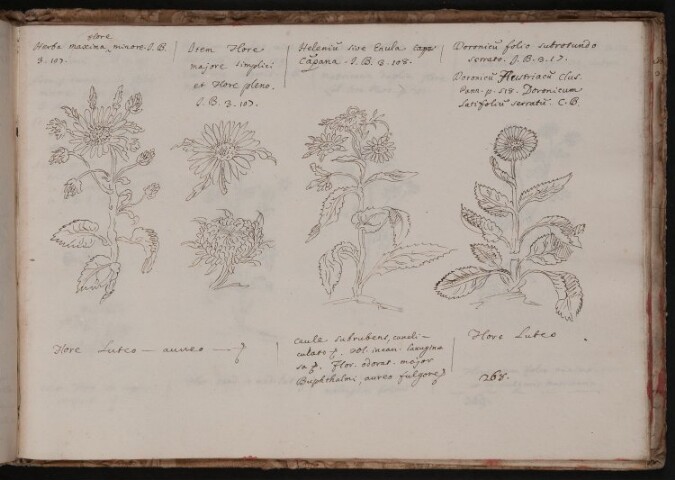 flore
Herba maxima, minore. J. B.
3. 107.
Item Flore
majore simplici
et Flore pleno.
J. B. 3. 107.
Heleniũ sive Enula cape
Cãpana. J. B. 3. 108.
Doronicũ folio subrotundo
serrato. J. B. 3. 17.
Doronicũ Austriacũ Clus.
Pann. p. 518. Doronicum
latifoliũ serratũ C. B.
Flore Luteo — aureo —
caule subrubens, canali-
culato
Flor. odorat. major
Buphthalmi, aureo fulgore
Flore Luteo
268.